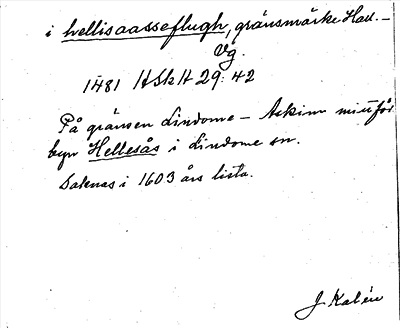 i hellisaasseflugh, gränsmärke Hall. –
Vg.
1481 HSkH 29: 42
På gränsen Lindome – Askim mitt för
byn Hellesås i Lindome sn.
Saknas i 1603 års lista.
J. Kalén